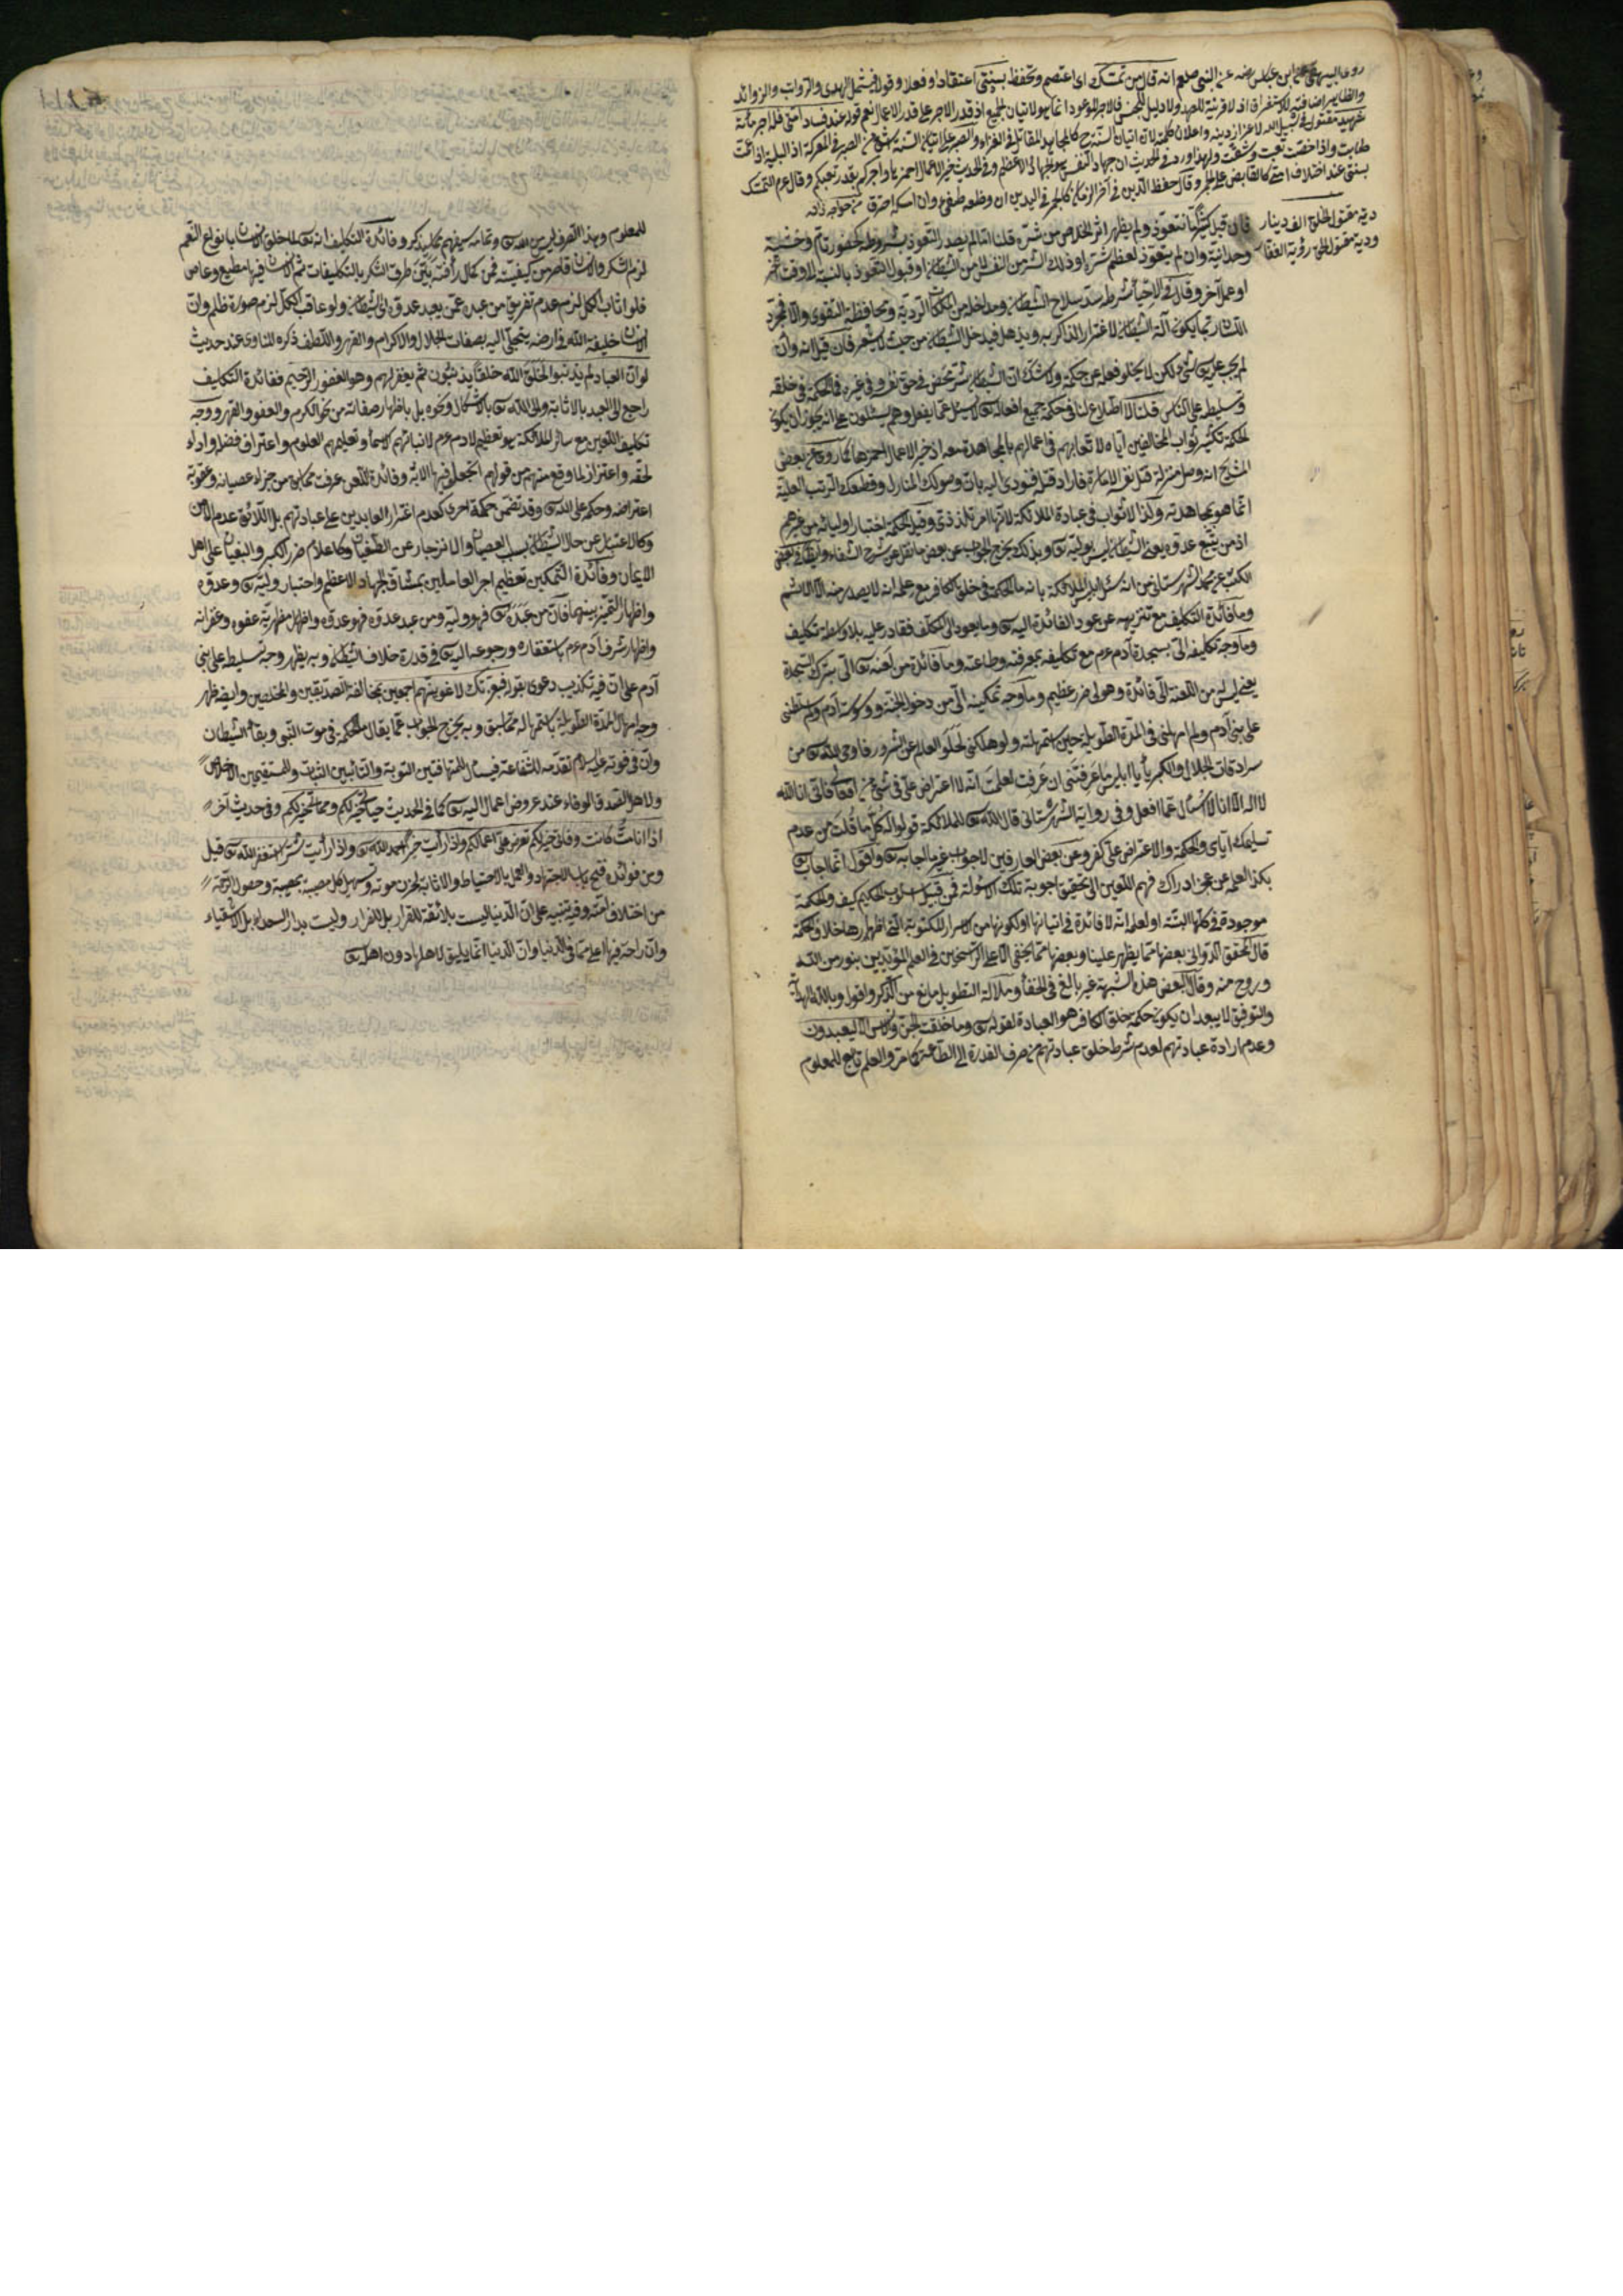 روى البيهقي عن ابن عباس رضه عن النبي صلعم انه قال من تمسك اى اعتصم وتحفظ بسنتى اعتقادا وفعلا وقولا فيشمل الهدى والرواتب والزوائد
والظاهر اضافته للاستغراق اذ لا قرينة للعهد ولا دليل للجنس فالاجر الموعود انما هو لاتيان الجميع اذ قدر الاجر على قدر الاعمال نعم قوله عند فساد امتى فله اجر مائة
شهيد مقتول فى سبيل الله لاعزاز دينه واعلان كلمته لان اتيان السنة ح كالمجاهد المقاتل فى الغزاء والصبر على اتباع السنة اشق من الصبر فى المعركة اذ البلية اذا عمت
طابت واذا خصت تعبت وشقت ولهذا ورد فى الحديث ان جهاد النفس هو الجهاد الاعظم وفى الحديث خير الاعمال احمزها واجركم بقدر تعبكم وقال عم المتمسك
بسنتى عند اختلاف امتى كالقابض على الجمر وقال حفظ الدين فى آخر الزمان كالجمر فى اليد ين ان وضعه طفئ وان امسكه احترق من خواجه زاده
دية مقتول الخلق الف دينار
ودية مقتول الحق رؤية الغفار
فان قيل كثيرا ما نتعوذ ولم يظهر اثر الخلاص من شره قلنا اما لم يصدر التعوذ بشروطه كحضور تام وخشية
وحدانية وان لم يتعوذ لعظم شره او ذلك الشر من النفس لا من الشيطان او قبول التعوذ بالنسبة الى وقت آخر
او عمل آخر وقال فى الاحياء شرط سد سلاح الشيطان ومداخله من المكات الردية ومحافظة التقوى والا فمجرد
اللسان ربما يكون آلة الشيطان لاغترار الذاكر به ويذهل فيدخل الشيطان من حيث لا يشعر فان قيل انه وان
لم يجب عليه شئ لكن لا يخلو فعله عن حكمة ولا شك ان الشيطان شر محض فى حق نفسه وفى غيره فما الحكمة فى خلقه
وتسليطه على الناس قلنا لا اطلاع لنا فى حكمة جميع افعاله تعالى لا يسئل عما يفعل وهم يسئلون على انه يجوز ان يكون
الحكمة تكثير ثواب المخالفين اياه ولاتعابهم فى اعمالهم بالمجاهدة معه اذ خير الاعمال احمزها كما روى عن بعض
المشايخ انه وصل منزلة قتل نفسه الامارة فاراد قتلها فنودى اليه بان وصولك المنازل وقطعك الرتب العلية
انما هو بمجاهدته وكذا لا ثواب فى عبادة الملائكة لانها امر تلذذى وقيل الحكمة اختبار اوليائه من غيرهم
اذ من يتبع عدوه يعنى الشيطان ليس بوليه وبذلك يخرج الجواب عن بعض ما نقل عن شرح الشفاء وايضا فى بعض
الكتب عن محمد الشهرستانى من انه سئل ابليس الملائكة بانه ما الحكمة فى خلق الكافر مع علمه انه لا يصدر منه الا الاثم
وما فائدة التكليف مع تنزيهه عن عود الفائدة اليه وما يعود الى المكلف فقادر عليه بلا واسطة تكليف
وما وجه تكليفه الى بسجدة آدم عم مع تكليفه بمعرفته وطاعته وما فائدة من لعنه الى بترك السجدة
يعنى ليس من اللعنة الى فائدة وهو لى ضرر عظيم وما وجه تمكينه الى من دخول الجنة ووسوسة آدم ولم سلطنى
على بنى آدم ولم امهلنى فى المدة الطويلة حين استمهلته ولو هلكنى لخلو العالم عن الشرور فاوحى الله من
سرادقات الجلال والكبرياء يا ابليس ما عرفتنى ان عرفت لعلمت انه لا اعتراض على فى شئ من افعالى فانى انا الله
لا اله الا انا لا اسئل عما افعل وفى رواية الشهرستانى قال الله للملائكة قولوا له كل ما قلت من عدم
تسليمك آياى والحكمة والاعتراض على كفر وعن بعض العارفين لا جواب غير ما اجابه واقول انما اجاب
بكذا لعلمه عن عجز ادراك فهم اللعين الى تحقيق اجوبة تلك الاسئولة فمن قبيل اسلوب الحكيم كيف والحكمة
موجودة فى كلها البتة او لعلمه انه لا فائدة فى اتيانها او لكونها من الاسرار المكتوبة التى اظهارها خلاف الحكمة
قال المحقق الدوانى بعضها مما يظهر علينا وبعضها مما يخفى الا على الراسخين فى العلم المؤيدين بنور من الله
وروح منه وقال البعض هذه الشبهة غير بالغ فى الخفاء وملالة التطويل مانع من الذكر واقول وبالله الهداية
والتوفيق لا يبعد ان يكون حكمة خلق الكافر هو العبادة لقوله وما خلقت الجن والانس الا ليعبدون
وعدم ارادة عبادتهم لعدم شرط خلق عبادتهم من صرف القدرة الى الطاعة كما مر والعلم تابع للمعلوم
للمعلوم وبهذا التصرف ليس من الله وتمامه سيفهم مما سيذكر وفائدة التكليف انه لما خلق الانسان بانواع النعم
لزم الشكر والانسان قاصر من كيفيته فمن كمال رأفته بين طرق الشكر بالتكليفات ثم الانسان فيها مطيع وعاص
فلو اثاب الكل لزم عدم تفريق من عبده عمن يعبد عدوه الشيطان ولو عاقب الكل لزم صورة ظلم وان
الانسان خليفة الله فى ارضه يتجلى اليه بصفات الجلال والاكرام والقهر واللطف ذكره المناوى عند حديث
لو ان العباد لم يذنبوا لخلق الله خلقا يذنبون ثم يغفر لهم وهو الغفور الرحيم ففائدة التكليف
راجع الى العبد بالاثابة والى الله بالاشكال ونحوه بل باظهار صفاته من نحو الكرم والعفو والقهر ووجه
تكليف اللعين مع سائر الملائكة هو تعظيم لآدم عم لانبائهم الاسماء وتعليمهم العلوم واعتراف فضله واداء
لحقه واعتزاز لما وقع منهم من قولهم اتجعل فيها الاية وفائدة اللعن عرفت مما كان من جزاء عصيانه وعقوبة
اعتراضه وحكمه على الله وقد تضمن حكمة اخرى كعدم اغترار العابدين على عباداتهم بل اللائق عدم الامن
وكالاعتبار عن حال الشيطان بسبب العصيان والانزجار عن الطغيان وكاعلام ضرر الكبر والبغيان على اهل
الايمان وفائدة التمكين تعظيم اجر العاملين بمشاق الجهاد الاعظم واختبار وليه وعدوه
واظهار التميز بينهما فان من عبده فهو وليه ومن عبد عدوه فهو عدوه واظهار مظهرية عفوه وغفرانه
واظهار شرف آدم عم باستغفاره ورجوعه اليه فى قدرة خلاف الشيطان وبه يظهر وجه تسليطه على بنى
آدم على ان فيه تكذيب دعوى بقوله فبعزتك لاغوينهم اجمعين بمخالفة الصديقين والمخلصين وايضا يظهر
وجه امهال المدة الطويلة باستمهاله مما سبق وبه يخرج الجواب عما يقال ما الحكمة فى موت النبى وبقاء الشيطان
وان فى فوته عليه السلام تقدمه للشفاعة فيسأل للمنافقين التوبة وللتائبين الثبات وللمستقيمين الاخلاص
ولاهل الصدق الوفاء عند عروض اعمال اليه كما فى الحديث حياتى خير لكم ومماتى خير لكم وفى حديث آخر
اذا انا مت كانت وفاتى خيرا لكم تعرض على اعمالكم واذا رأيت خيرا احمد الله واذا رأيت شرا استغفر الله قيل
ومن فوائده فتح باب الاجتهاد والعمل بالاحتياط والاثابة لحزن موته وتسهيل كل مصيبة بمصيبته وحصول الرحمة
من اختلاف امته وفيه تنبيه على ان الدنيا ليست بلائقة للقرار بل للفرار وليست بدار السعداء بل الاشقياء
وان راحته فيها اعلى مما فى الدنيا وان الدنيا انما يليق لاهلها دون اهل